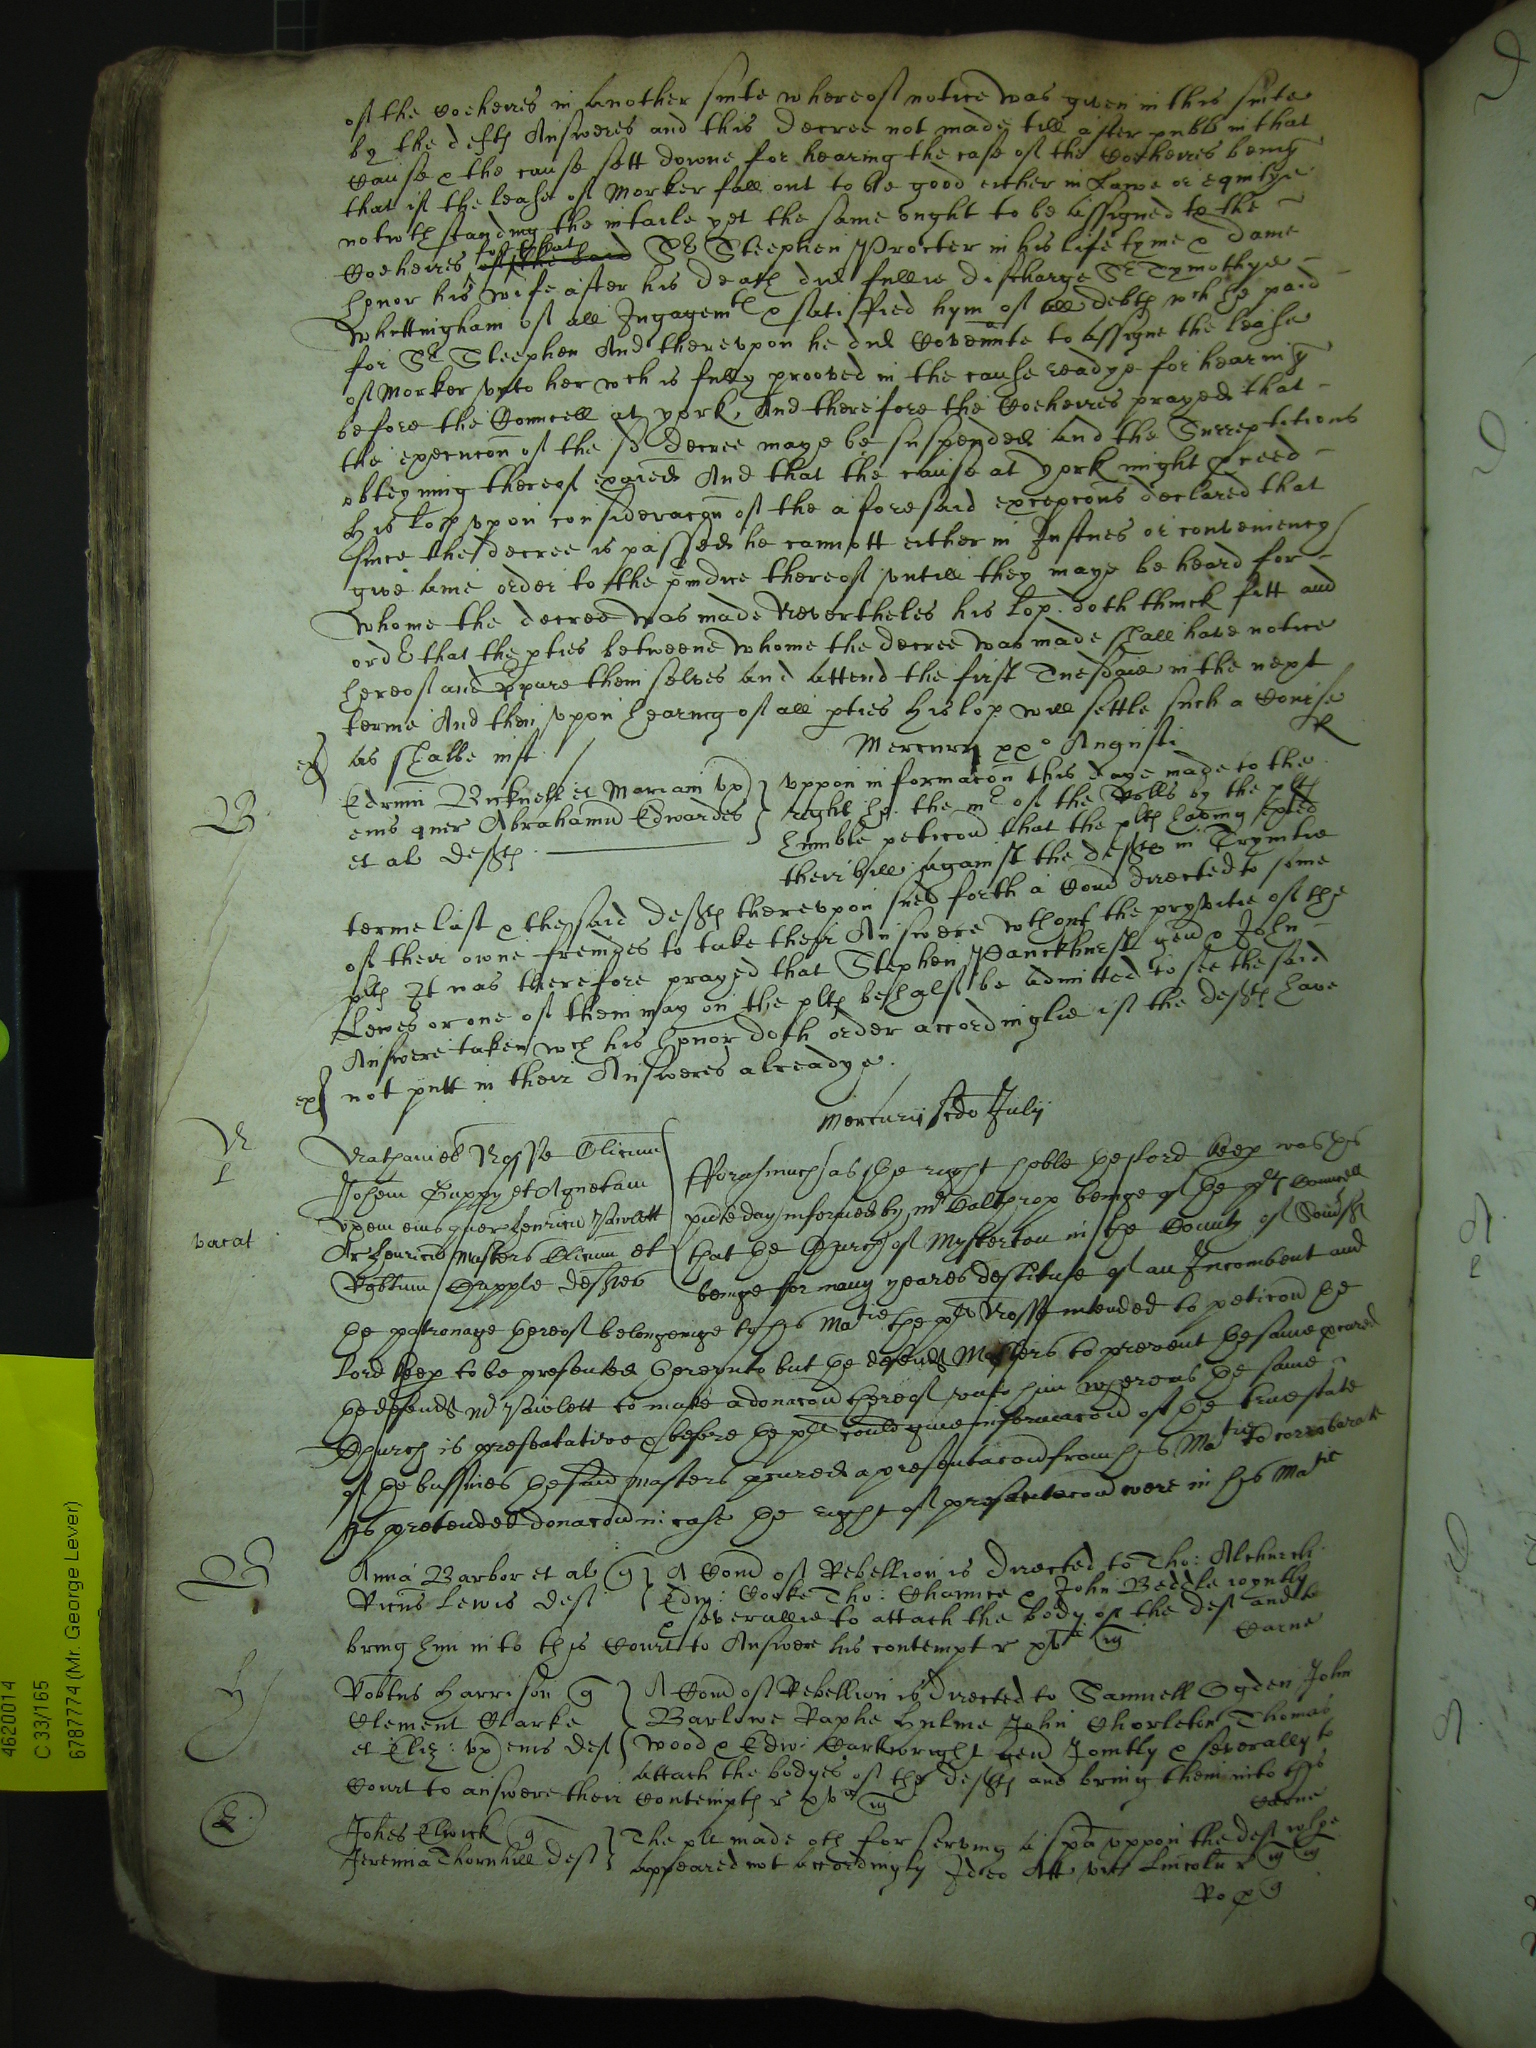 of the Coeheires in another suite whereof notice was given in this suite
by the defts Answeres and this decree not made till after publ in that
Cause & the cause sett downe for hearing the case of the Coeheires being
that if the lease of Morker fall out to be good either in Lawe or equitye
notwth standing the intaile yet the same ought to be assigned to the
Coeheires for that Sr Steephen Procter in his life tyme & dame
honor his wife after his death did fullie discharge Sr Tymothye
Whittingham of all Ingagemts & satisfied hym of all debts wch he paid
for Sr Steephen And therevpon he did Covennte to assigne the lease
of Morker vnto her wch is fully prooved in the cause readye for hearing
before the Councell at york, And therefore the Coeheires prayed that
the execucon of the sd decree maye be suspended and the Surreptitious
obteyning thereof exaied And that the cause at york might pceed
His lop vpon consideracon of the aforesaid excepcons declared that
since the decree is passed he cannott either in Justnes or conveniency
give anie order to the piudice thereof vntill they maye be heard for
whome the decree was made Nevertheles his lop. doth thinck fitt and
order that the pties betweene whome the decree was made shall have notice
hereof and ppare them selves and attend the first Tuesdaie in the next
terme And then vpon hearing of all pties His lop. will settle such a Course
as shalbe iust
ex
R
Mercurij xxo Augusti
B
Edrmn Bicknell et Mariam vx
eius quer Abrahamu Edwardes
et al defts
Vppon informacon this daye made to the
right ho. the mr of the Rolls by the plts
humble peticon that the plts having exhed
their bill against the defts in Trynitie
terme last & the said defts therevpon sued forth a Comd directed to some
of their owne freindes to take their Answere wthout the pryvitie of the
plts It was therefore prayed that Stephen Panckhurst gen & John
Lewes or one of them may on the plts behalf be admitted to see the said
Answere taken wch his honor doth order accordinglie if the defts have
not putt in their Answeres alreadye.
ex
Mercurij scdo Julij
R
L
vacat
Nathaniel Rosse Clicum
Johem Guppy et Agnetam
vxem eius quer Henricu Pawlett
Ar Henricu Masters Clicum et
Robtum Chapple deftes
Fforasmuch as the right hoble the lord keep was this
pnte day informed by mr Calthrop beinge of the plts Councell
that the Church of Misterton in the County of Somst
beinge for many yeares destitute of an Incombent and
the patronage thereof belonginge to his Matie the plt Rosse intended to peticon the
lord keep to be presented therevnto but the defendt Masters to prevent the same pcured
the defendt mr Pawlett to make a donacon thereof vnto him whereas the same
Church is presentative & before the plt could give informacon of the true state
of the bussines the said Masters pcured a presentacon from his Matie to corroborate
his pretended donacon in case the right of presentacon were in his Matie
B
Anna Barbor et al q
Ricus Lewis deft
A Comd of Rebellion is directed to Tho: Alchurch
Edw: Cooke Tho: Chaunce & John Beddle ioyntly
& severallie to attach the body of the deft and to
bring him in to this Court to Answere his contempt r xva
Carne
H
Robtus Harrison q
Clement Clarke
et Eliz: vx eius deft
A Comd of Rebellion is directed to Samuell Ogden John
Barlowe Raphe Hulme John Chorleton Thomas
Wood & Edw: Cartwright gen Joyntly & severally to
attach the bodyes of the defts and bring them into this
Court to answere their Contempts r xva
Carne
E
Johes Elwick q
Jeremia Thornhill deft
The plt made oth for serving a spa vppon the deft whoe
appeared not accordingly Ideo Att vic Lincoln r
Ro
4620014
C 33/165
6787774 (Mr. George Lever)